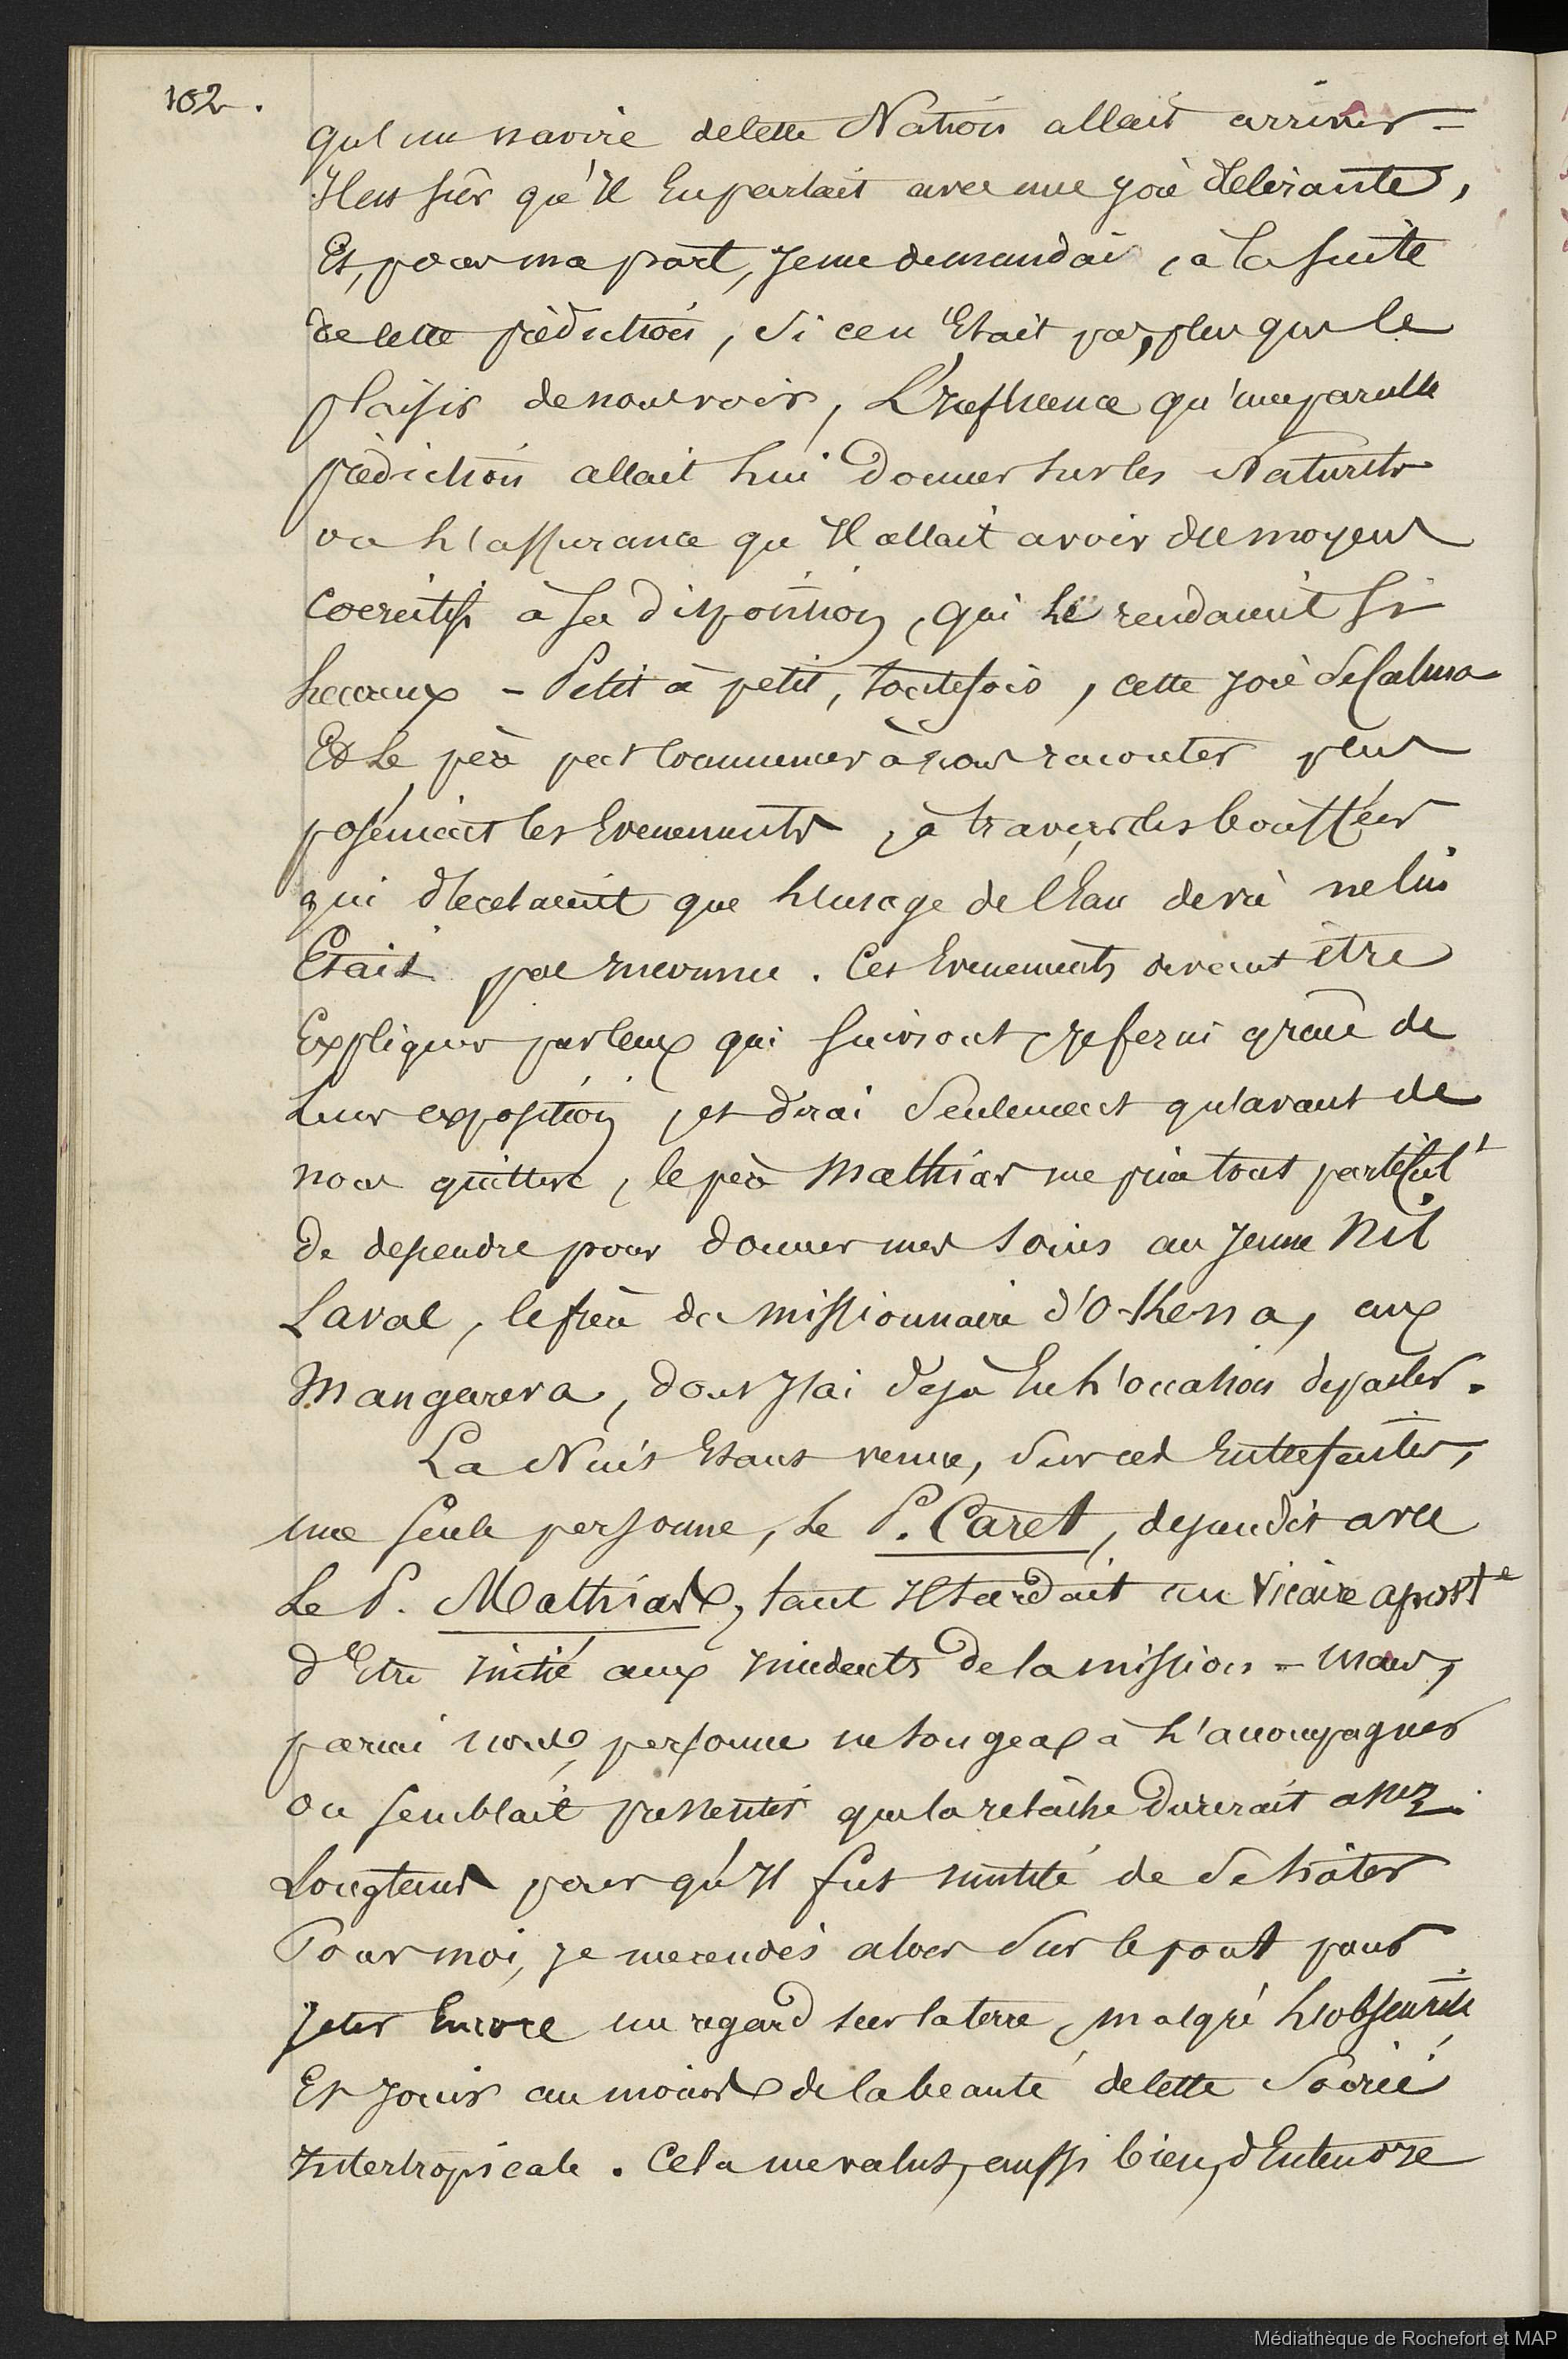 102.
qu'un navire de cette Nation allait arriver -
Il est sûr qu'Il En parlait avec une joie délirante,
Et, pour ma part, Je me demandai, à la suite
de cette prédiction, Si ce n'Etait pas, plus que le
plaisir de nous voir, L'Influence qu'une pareille
prédiction allait lui donner sur les Naturels
ou l'assurance qu'Il allait avoir des moyens
coercitifs à sa disposition, qui le rendaient si
heureux - Petit à petit, toutefois, cette joie Se Calma
Et Le père put Commencer à nous raconter plus
posément les Evenements, à travers des bouffées
qui décelaient que l'usage de l'Eau de vie ne lui
Etait pas Inconnu. Ces Evenements devant être
Expliqués par Ceux qui suivront, Je ferai grâce de
Leur exposition, et dirai Seulement qu'avant de
nous quitter, le père Mathias me pria tout particult
de descendre pour donner mes soins au Jeune Nil
Laval, le frère du missionnaire d'O-Kena, aux
Mangareva, dont J'ai déjà Eu l'occasion de parler.
La Nuit Etant venue, Sur ces Entrefaites,
une seule personne, Le P. Caret, descendit avec
Le P. Mathias, tant Il tardait au Vicaire aposte
d'Etre Initié aux Incidents de la mission - mais,
parmi nous, personne ne songea à l'accompagner
on semblait pressentir que la relâche Durerait assez
Longtems pour qu'Il fut Inutile de Se hâter
Pour moi, Je me rendis alors Sur le pont pour
Jeter Encore un regard sur la terre, malgré l'obscurité
Et Jouir au moins de la beauté de cette Soirée
Intertropicale. Cela me valut, aussi bien, d'Entendre
Médiathèque de Rochefort et MAP